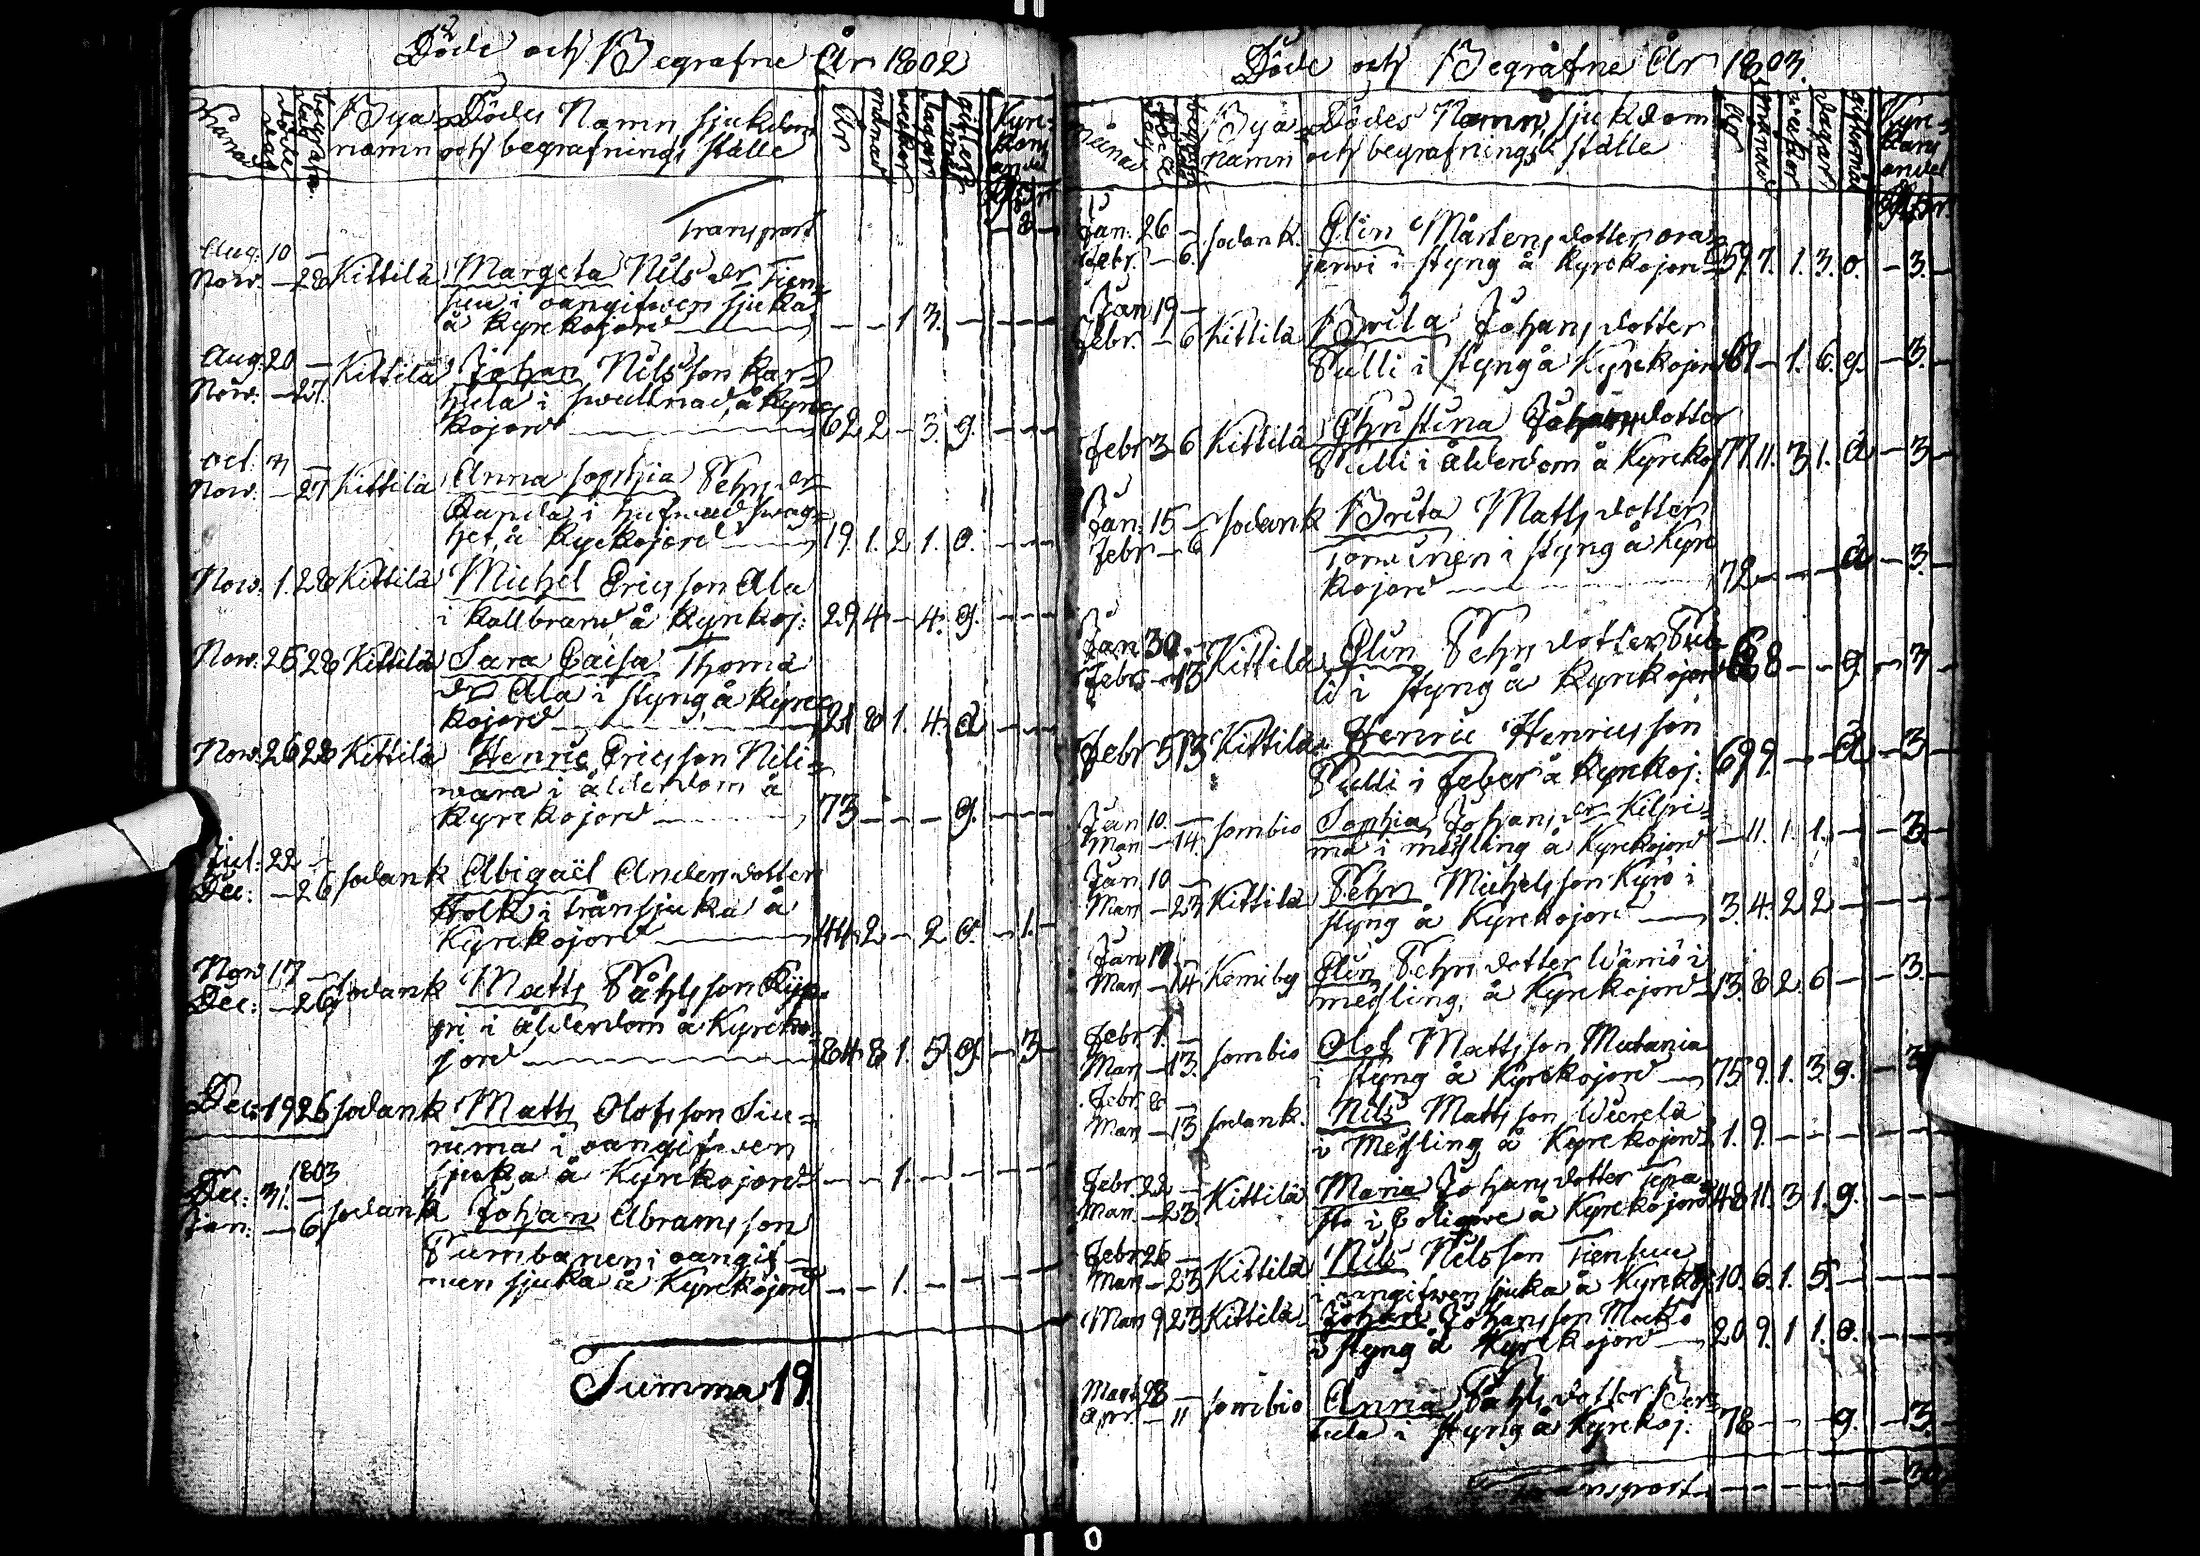 Döde och Begrafne År 1802
Månad
döde dag
begrafn. dag
Bya namn
Dödes Namn, sjukdom
och begrafnings ställe
År
månad
weckor
dagar
Kyrc-
kans
andel
Transport - 8 -
Aug: 10 -
Nov. - 28 Kittilä Margeta Nils dr Tien-
suu i oangifwen sjuka
å kyrckojord - - 1 3. - - - -
Aug: 20 -
Nov: - 27. Kittilä Johan Nilsson Kar-
hula i swullnad, å Kyrc-
kojord 62 2 - 3. g. - - -
Oct: 7 -
Nov. - 27 Kittilä Anna Sophia Pehrs dr
i hufwud swag-
het å kyrckojord 19. 1. 2 1. o. - - -
Nov. 1. 28 Kittilä Michel Ericsson Ala
i kallbrand å Kyrckoj: 29 4 - 4. g. - - -
Nov: 25 28 Kittilä Sara Caisa Thoma
dr Ala i styng, å Kyrc-
kojord 21 8 1. 4. - - -
Nov: 26 28 Kittilä Henric Ericsson Nili-
wara i ålderdom å
Kyrckojord 73 - - - g. - - -
Jul: 22 -
Dec: - 26 sodank Abigaël Anders dotter
i trånsjuka å
Kyrckojord 44 2 - 2 o. - 1. -
Nov 17 -
Dec: - 26 sodank Matts Påhlsson Kyp-
pi i ålderdom å Kyrcko-
jord 84 8 1. 5 g. - 3 -
Dec: 19 26 sodank Matts Olofsson Siu-
ruma i oangifwen
sjuka å Kyrckojord - - 1. - - - -
1803
Dec: 31. -
Jan: - 6 sodank Johan Abramsson
Pumbanen i oangif-
wen sjuka å Kyrckojord - - 1. - - - -
Summa 19.
Döde och Begrafne År 1803.
Månad
Bya
namn
Dödes Namn, sjukdom
och begrafnings ställe
År
månad
weckor
dagar
Kyrc-
kans
andel
Jan: 26 -
Febr. - 6. sodank. Elin Mårtens dotter ora-
jerwi i styng å kyrckojord 59 7. 1. 3. o. - 3. -
Jan 19 -
Febr. - 6 Kittilä Brita Johans dotter
Pulli i styng å Kyrckojord 67 - 1. 6. g. - 3. -
Febr 3 6 Kittilä Christina Johans dotter
Pulli i ålderdom å Kyrckoj 77. 11. 3 1. - 3 -
Jan: 15 -
Febr - 6 sodank Brita Matts dotter
i styng å Kyrc
kojord 72 - - - - 3. -
Jan 30. -
Febr - 13 Kittilä Elin Pehrs dotter Pul-
li i styng å Kyrckojord 8 - - g. - 3 -
Febr 5 13 Kittilä Henric Henricsson
Pulli i Feber å Kyrckoj: 69 9. - - - 3 -
Jan 10. -
Mars - 14. sombio Sophia Johans dr Kilpi-
ma i messling å Kyrckojord - 11. 1. 1. - - 3. -
Jan 10 -
Mars - 23 Kittilä Pehr Michelsson Kyrö i
styng å Kyrckojord 3. 4. 2 2 - - - -
Jan -
Mars - 14 Kemiby Elin Pehrs dotter Wäniö i
messling, å Kyrckojord 13. 8. 2. 6 - - 3. -
Febr 1. -
Mars - 13. sombio Olof Mattsson Mutania
i styng å Kyrckojord 75 9. 1. 3. g. - 3
Febr. 8 -
Mars - 13 sodank. Nils Mattsson
i Messling å Kyrckojord 1. 9. - - - - -
Febr. 22 -
Mars - 23. Kittilä Maria Johans dotter Tepa-
sto i Colique å Kyrckojord 48 11. 3 1. g. - - -
Febr 26 -
Mars - 23 Kittilä Nils Nilsson Tiensuu
i oangifwen sjuka å Kyrckoj 10. 6. 1. 5. - - - -
Mars 9 23 Kittilä Johan Johansson
i styng å Kyrckojord 20 9. 1 1. o. - - -
28 -
Apr. - 11 sombio Anna Påhls dotter Per-
tula i styng å Kyrckoj. 78 - - - g. - 3. -
Transport
0